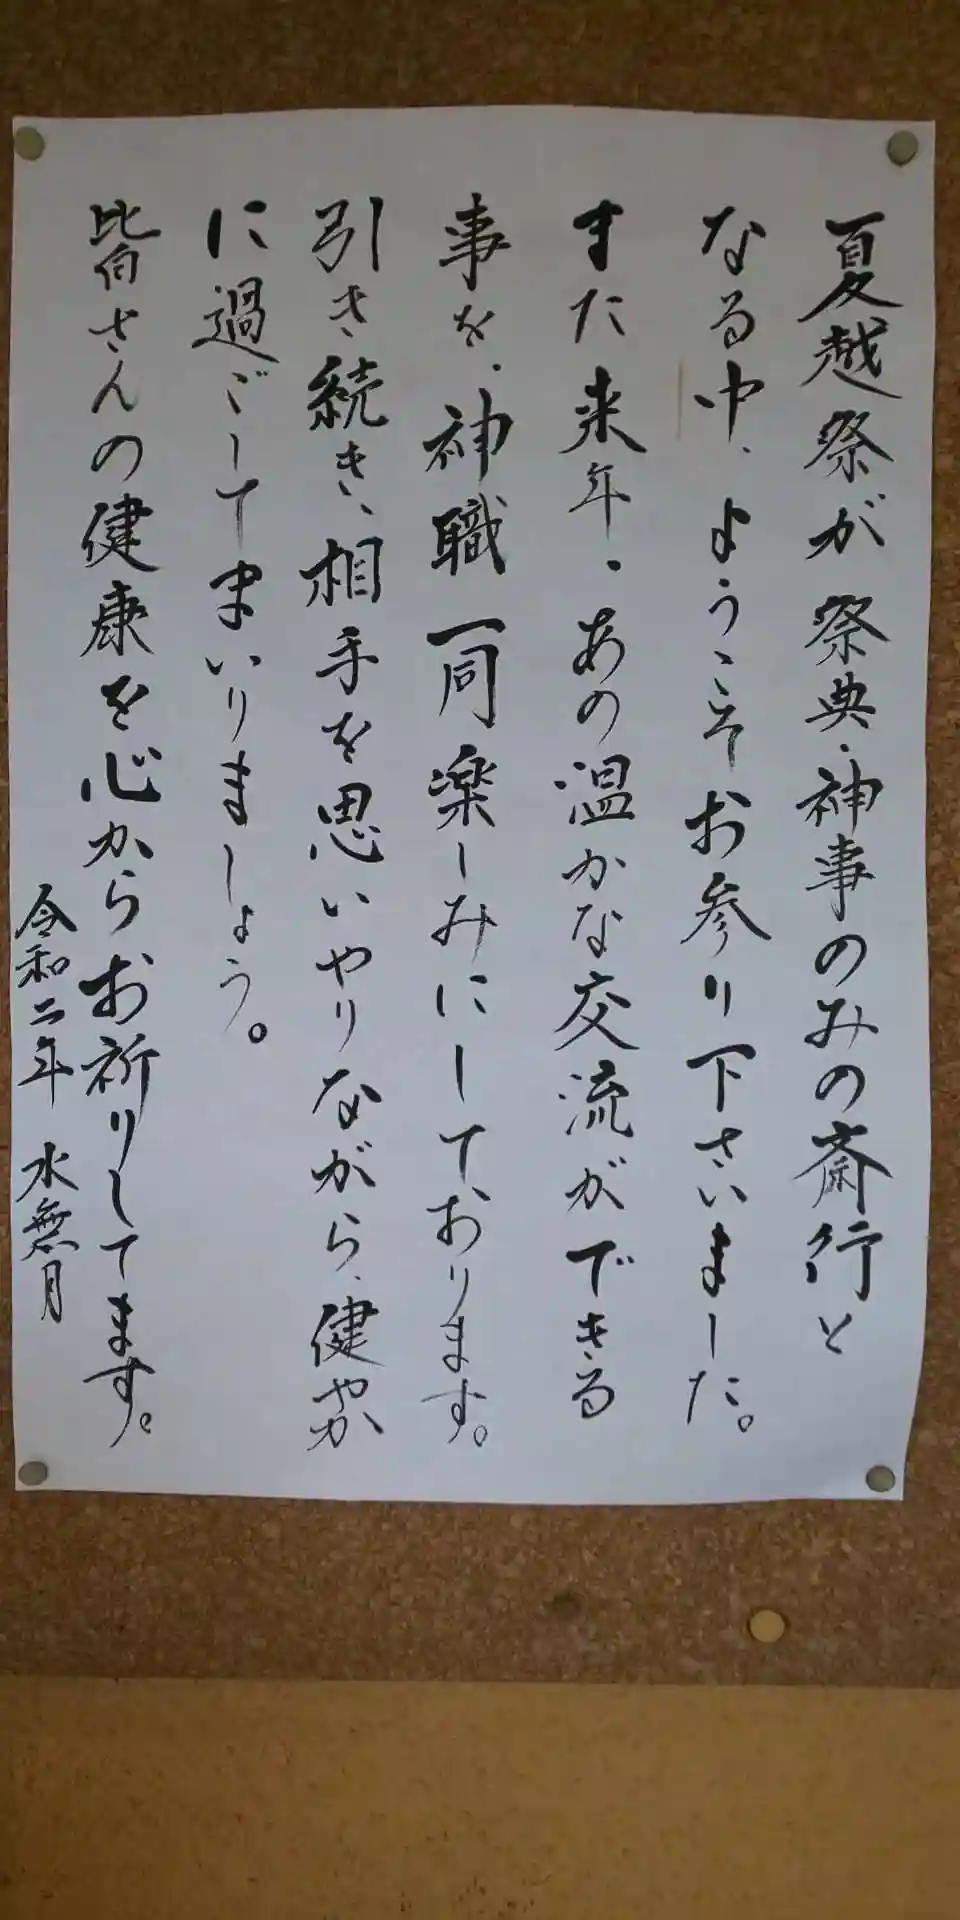 夏越祭が祭典、神事のみの斎行と
なる中、ようこそお参り下さいました。
また来年、あの温かな交流ができる
事を、神職一同楽しみにして、おります。
引き続き、相手を思いやりながら、健やか
に過ごしてまいりましょう。
皆さんの健康を心からお祈りしてます。
令和二年 水無月